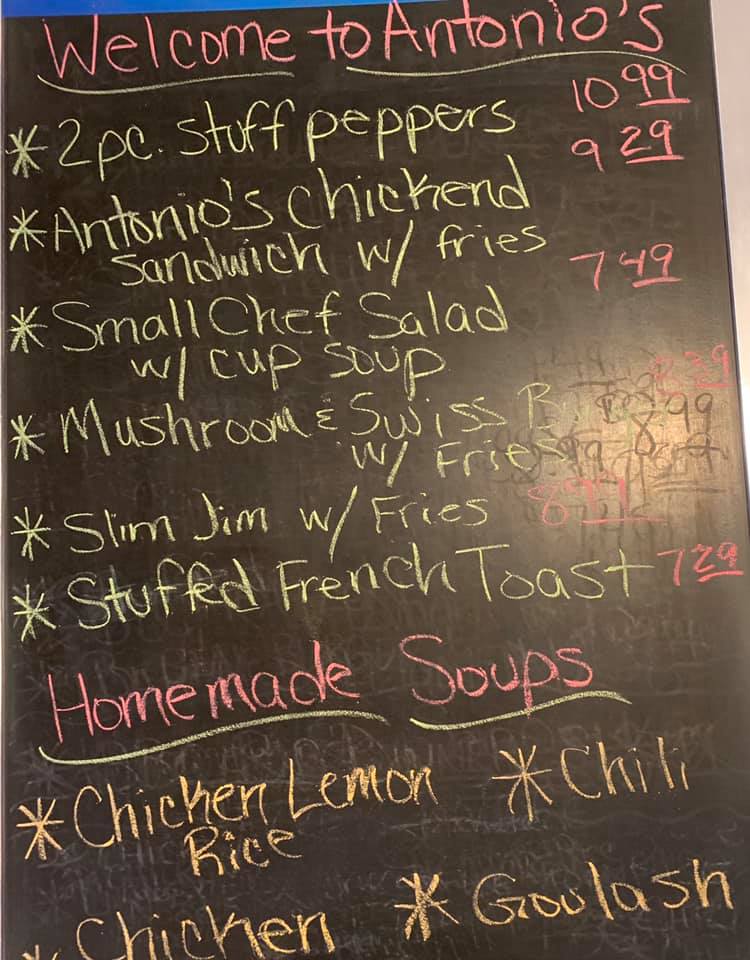 Welcome to Antonio's
* 2pc. Stuff peppers 10 99
* Antonio's Chickend 9 29
sandwich w/ fries
* Small Chef Salad 7 49
w/ cup soup
* Mushroom & Swiss
w/ Fries
* Slim Jim w/ Fries
* Stuffed French Toast 7 29
Homemade Soups
* Chicken Lemon * Chili
Rice
* Chicken * Goulash